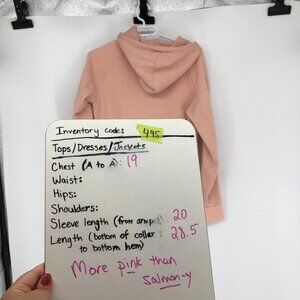 Inventory code: 495
Tops/Dresses/Jackets
Chest (A to A): 19
Waist:
Hips:
Shoulders:
Sleeve length (from armpit): 20
Length (bottom of collar : 28.5
to bottom hem)
More pink than
salmon-y